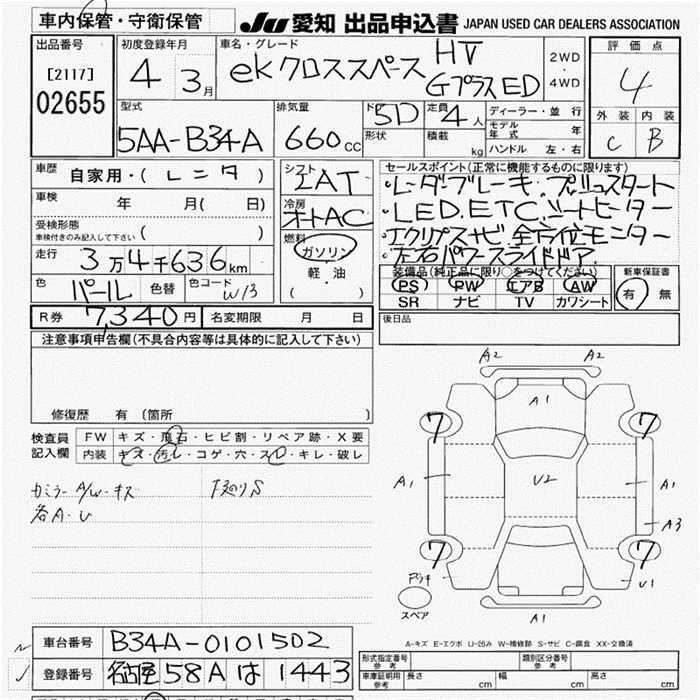 車内保管・守衛保管
JU 愛知 出品申込書 JAPAN USED CAR DEALERS ASSOCIATION
出品番号
[2117]
02655
初度登録年月
4 3月
車名・グレード
ekクロススペース HV
GプラスED
2WD
・
4WD
評価点
4
外装 内装
C B
型式
5AA-B34A
排気量
660cc
ドア 5D
形状
定員 4人
積載 kg
ディーラー・並行
モデル年式 年
ハンドル 左・右
車歴
自家用・(レンタ)
車検 年 月( 日)
受検形態
車検付きのみ記入して下さい ( )
走行
3万4千636km
色 パール 色替 色コード W13
シフト
IAT
冷房
オートAC
燃料
ガソリン
軽油
( )
セールスポイント(正常に機能するものに限ります)
・レーダーブレーキ.プッシュスタート
・LED.ETC.シートヒーター
・エクリプスナビ 全方位モニター
・左右パワースライドドア
装備品(純正品に限り○をつけてください)
PS PW エアB AW
SR ナビ TV カワシート
新車保証書
有 無
後日品
R券 7,340円 名変期限 月 日
注意事項申告欄(不具合内容等は具体的に記入して下さい)
修復歴 有 (箇所 )
検査員
記入欄
FW キズ・飛石・ヒビ割・リペア跡・X要
内装 キズ・汚レ・コゲ・穴・スレ・キレ・破レ
カミラー A/W-キズ
各A・U
下廻りS
A2 A2
A1
7 7
A1 U2 A1
A3
7 7
U1
スペア
A1
A-キズ E-エクボ U-凹み W-補修跡 S-サビ C-腐食 XX-交換済
車台番号 B34A-0101502
登録番号 名古屋 58A は 1443
形式指定番号
参考
類別区分番号
参考
車庫証明用
参考
長さ cm 幅 cm 高さ cm